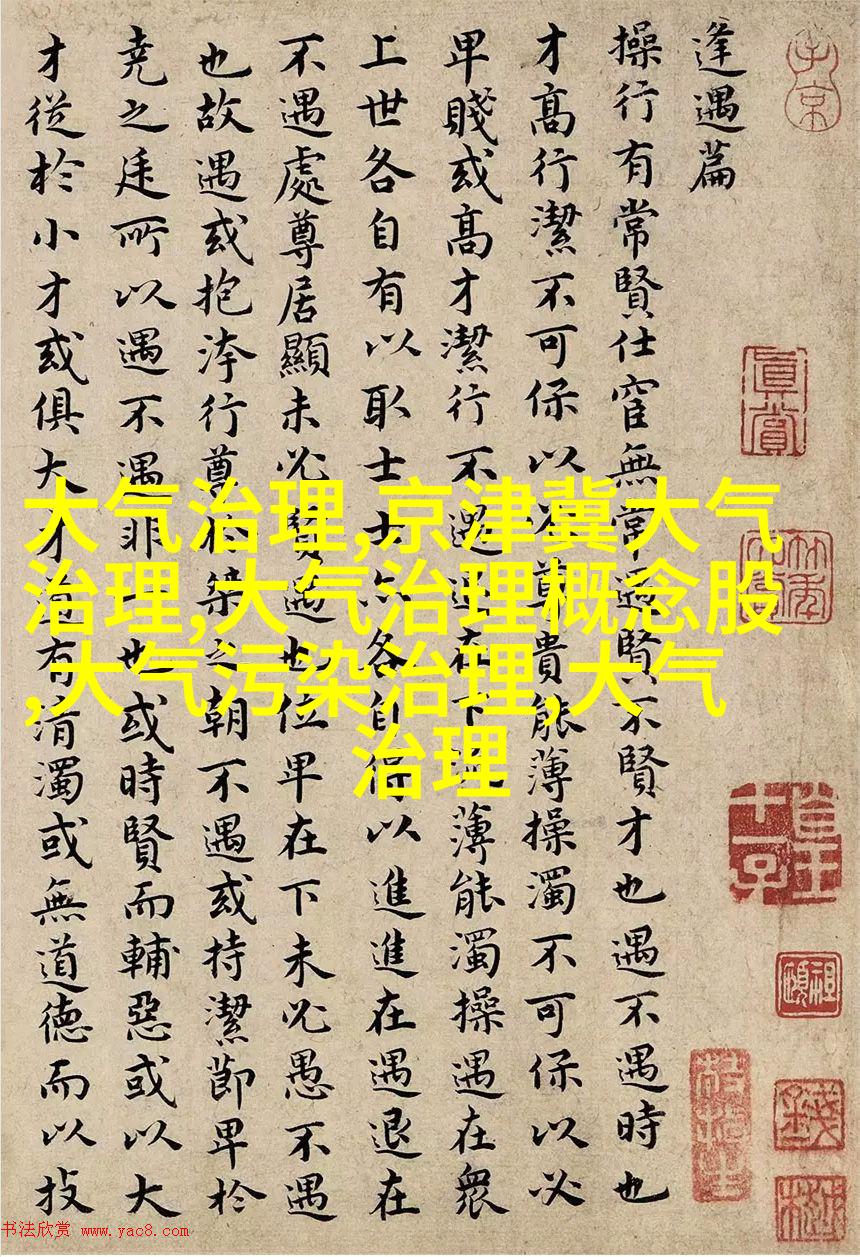 逢遇篇
操行有常賢仕宦無常遇賢不賢才也遇不遇時也
才高行潔不可保以必尊貴能薄操濁不可保以必
卑賤或高才潔行不遇退在下流薄能濁操遇在衆
上世各自有以取士士亦各自得以進進在遇退在
不遇處尊居顯未必賢遇也位卑在下未必愚不遇
也故遇或抱洿行尊於桀之朝不遇或持潔節卑於
尭之廷所以遇不遇非一也或時賢而輔惡或以大
才從於小才或俱大才道有清濁或無道德而以技
大气治理,京津冀大气
治理,大气治理概念股
,大气污染治理,大气
治理
真賞
书法欣赏 www.yac8.com